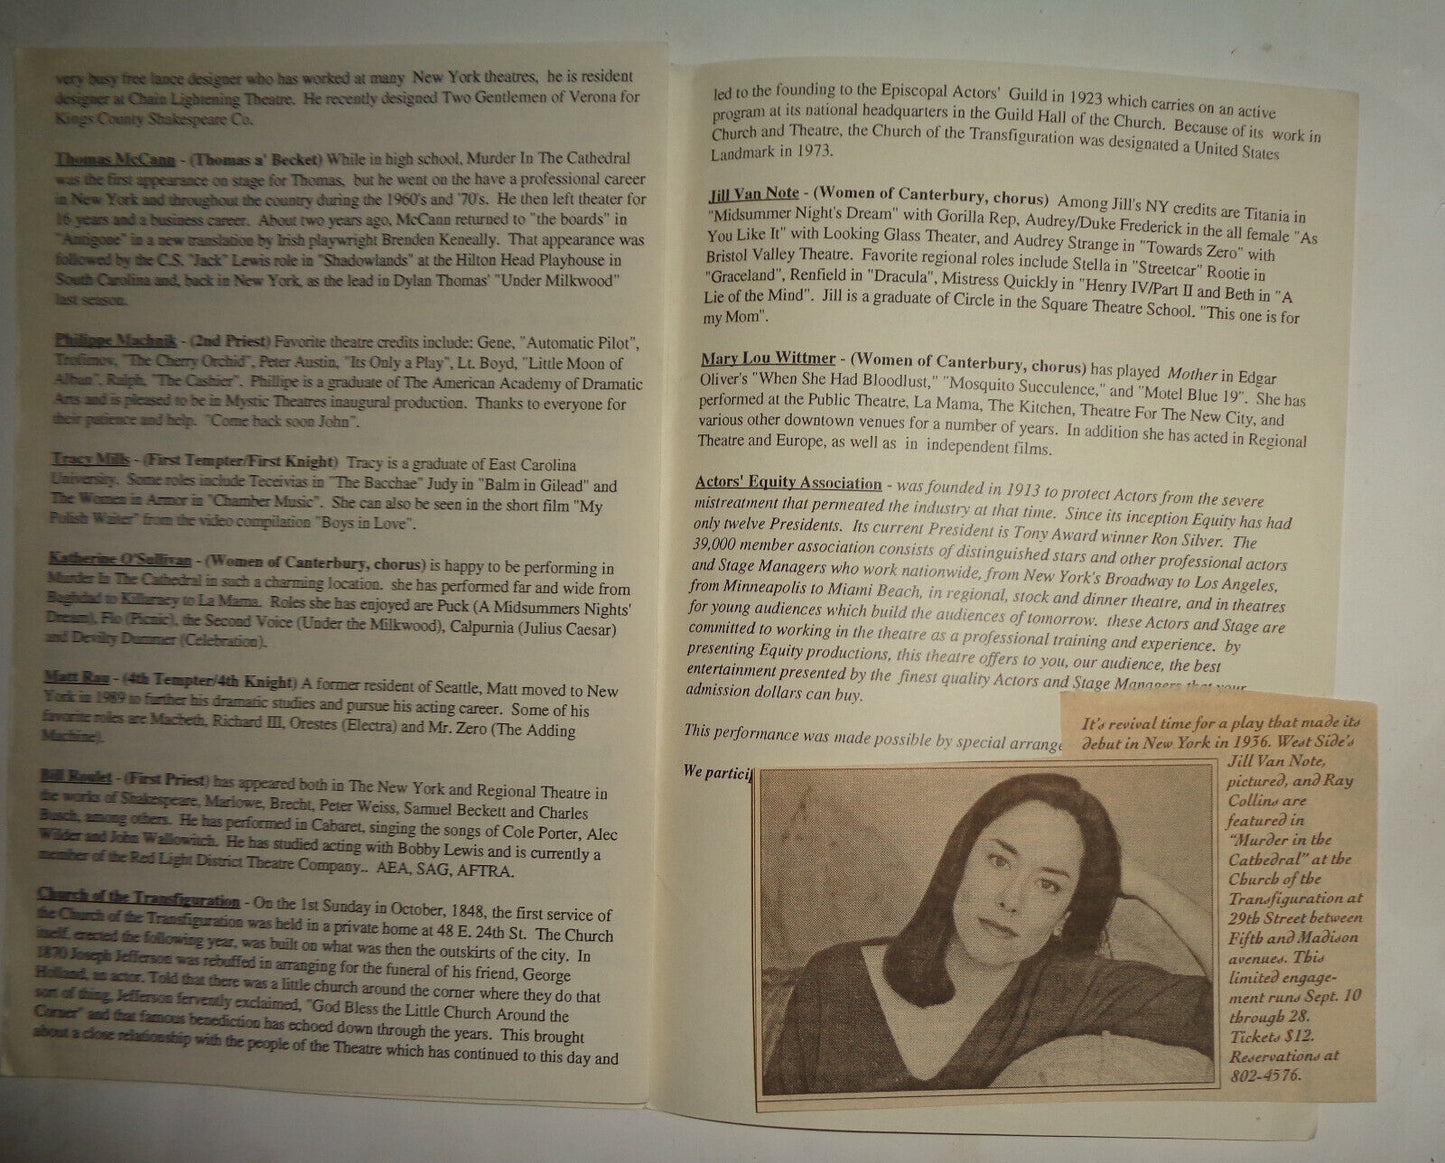 very busy free lance designer who has worked at many New York theatres, he is resident
designer at Chain Lightening Theatre. He recently designed Two Gentlemen of Verona for
Kings County Shakespeare Co.
Thomas McCann - (Thomas a' Becket) While in high school, Murder In The Cathedral
was the first appearance on stage for Thomas, but he went on the have a professional career
in New York and throughout the country during the 1960's and '70's. He then left theater for
16 years and a business career. About two years ago, McCann returned to "the boards" in
"Antigone" in a new translation by Irish playwright Brenden Keneally. That appearance was
followed by the C.S. "Jack" Lewis role in "Shadowlands" at the Hilton Head Playhouse in
South Carolina and, back in New York, as the lead in Dylan Thomas' "Under Milkwood"
last season.
Philippe Machnik - (2nd Priest) Favorite theatre credits include: Gene, "Automatic Pilot",
Trofimov, "The Cherry Orchid", Peter Austin, "Its Only a Play", Lt. Boyd, "Little Moon of
Alban", Ralph, "The Cashier". Phillipe is a graduate of The American Academy of Dramatic
Arts and is pleased to be in Mystic Theatres inaugural production. Thanks to everyone for
their patience and help. "Come back soon John".
Tracy Mills - (First Tempter/First Knight) Tracy is a graduate of East Carolina
University. Some roles include Teceivias in "The Bacchae" Judy in "Balm in Gilead" and
The Women in Armor in "Chamber Music". She can also be seen in the short film "My
Polish Waiter" from the video compilation "Boys in Love".
Katherine O'Sullivan - (Women of Canterbury, chorus) is happy to be performing in
Murder In The Cathedral in such a charming location. she has performed far and wide from
Baghdad to Killarney to La Mama. Roles she has enjoyed are Puck (A Midsummers Nights'
Dream), Flo (Picnic), the Second Voice (Under the Milkwood), Calpurnia (Julius Caesar)
and Devilry Dummer (Celebration).
Matt Rau - (4th Tempter/4th Knight) A former resident of Seattle, Matt moved to New
York in 1989 to further his dramatic studies and pursue his acting career. Some of his
favorite roles are Macbeth, Richard III, Orestes (Electra) and Mr. Zero (The Adding
Machine).
Bill Roulet - (First Priest) has appeared both in The New York and Regional Theatre in
the works of Shakespeare, Marlowe, Brecht, Peter Weiss, Samuel Beckett and Charles
Busch, among others. He has performed in Cabaret, singing the songs of Cole Porter, Alec
Wilder and John Wallowitch. He has studied acting with Bobby Lewis and is currently a
member of the Red Light District Theatre Company.. AEA, SAG, AFTRA.
Church of the Transfiguration - On the 1st Sunday in October, 1848, the first service of
the Church of the Transfiguration was held in a private home at 48 E. 24th St. The Church
itself, erected the following year, was built on what was then the outskirts of the city. In
1870 Joseph Jefferson was rebuffed in arranging for the funeral of his friend, George
Holland, an actor. Told that there was a little church around the corner where they do that
sort of thing, Jefferson fervently exclaimed, "God Bless the Little Church Around the
Corner" and that famous benediction has echoed down through the years. This brought
about a close relationship with the people of the Theatre which has continued to this day and
led to the founding to the Episcopal Actors' Guild in 1923 which carries on an active
program at its national headquarters in the Guild Hall of the Church. Because of its work in
Church and Theatre, the Church of the Transfiguration was designated a United States
Landmark in 1973.
Jill Van Note - (Women of Canterbury, chorus) Among Jill's NY credits are Titania in
"Midsummer Night's Dream" with Gorilla Rep, Audrey/Duke Frederick in the all female "As
You Like It" with Looking Glass Theater, and Audrey Strange in "Towards Zero" with
Bristol Valley Theatre. Favorite regional roles include Stella in "Streetcar" Rootie in
"Graceland", Renfield in "Dracula", Mistress Quickly in "Henry IV/Part II and Beth in "A
Lie of the Mind". Jill is a graduate of Circle in the Square Theatre School. "This one is for
my Mom".
Mary Lou Wittmer - (Women of Canterbury, chorus) has played Mother in Edgar
Oliver's "When She Had Bloodlust," "Mosquito Succulence," and "Motel Blue 19". She has
performed at the Public Theatre, La Mama, The Kitchen, Theatre For The New City, and
various other downtown venues for a number of years. In addition she has acted in Regional
Theatre and Europe, as well as in independent films.
Actors' Equity Association - was founded in 1913 to protect Actors from the severe
mistreatment that permeated the industry at that time. Since its inception Equity has had
only twelve Presidents. Its current President is Tony Award winner Ron Silver. The
39,000 member association consists of distinguished stars and other professional actors
and Stage Managers who work nationwide, from New York's Broadway to Los Angeles,
from Minneapolis to Miami Beach, in regional, stock and dinner theatre, and in theatres
for young audiences which build the audiences of tomorrow. these Actors and Stage are
committed to working in the theatre as a professional training and experience. by
presenting Equity productions, this theatre offers to you, our audience, the best
entertainment presented by the finest quality Actors and Stage Managers that your
admission dollars can buy.
This performance was made possible by special arrange
We particip
It's revival time for a play that made its
debut in New York in 1936. West Side's
Jill Van Note,
pictured, and Ray
Collins are
featured in
"Murder in the
Cathedral" at the
Church of the
Transfiguration at
29th Street between
Fifth and Madison
avenues. This
limited engage-
ment runs Sept. 10
through 28.
Tickets $12.
Reservations at
802-4576.